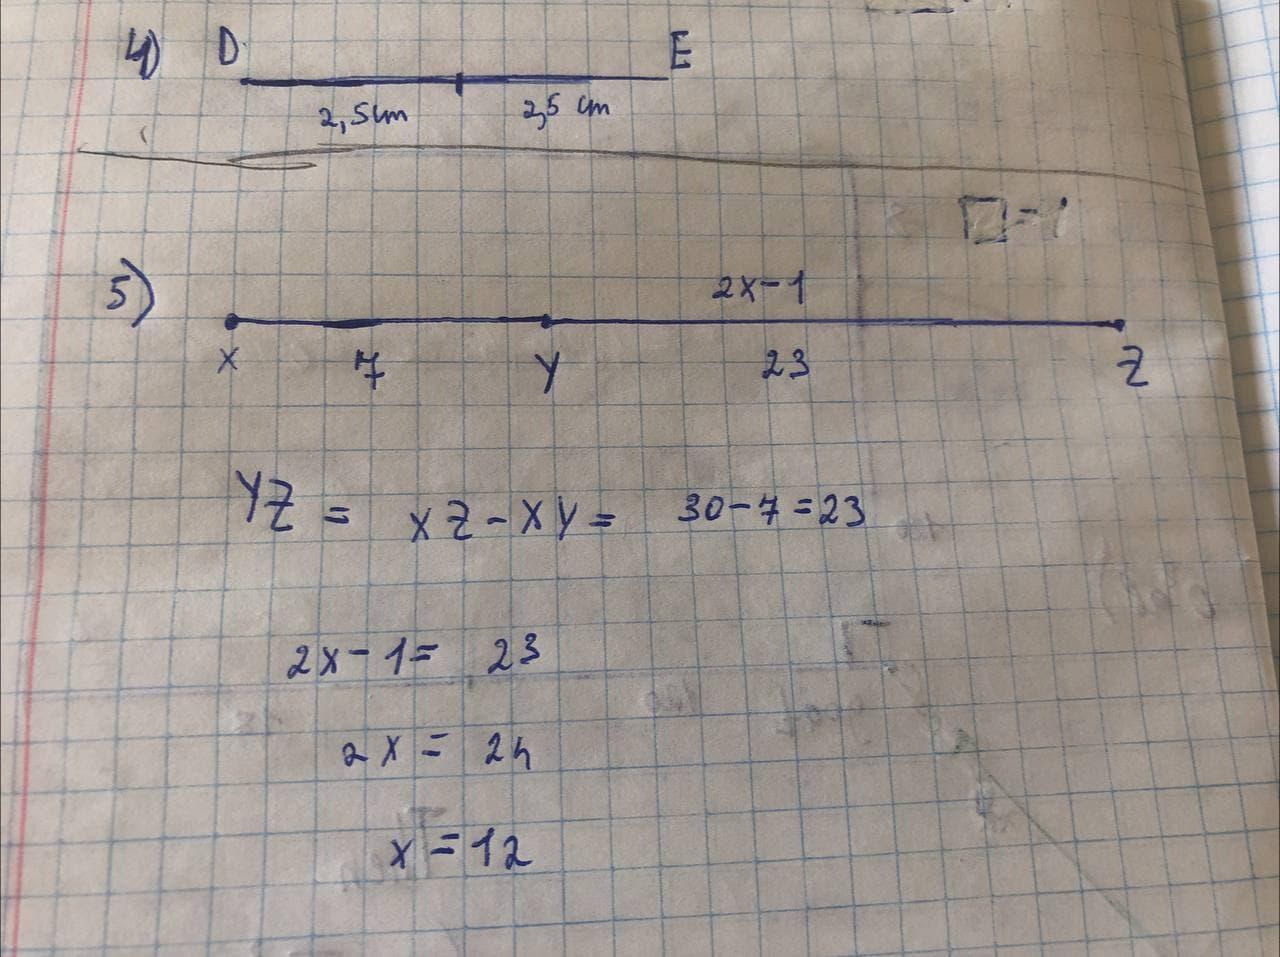 4) D E
2,5 cm 2,5 cm
5)
2x-1
X 7 Y 23 Z
YZ = XZ - XY = 30-7=23
2x-1= 23
2x = 24
x = 12